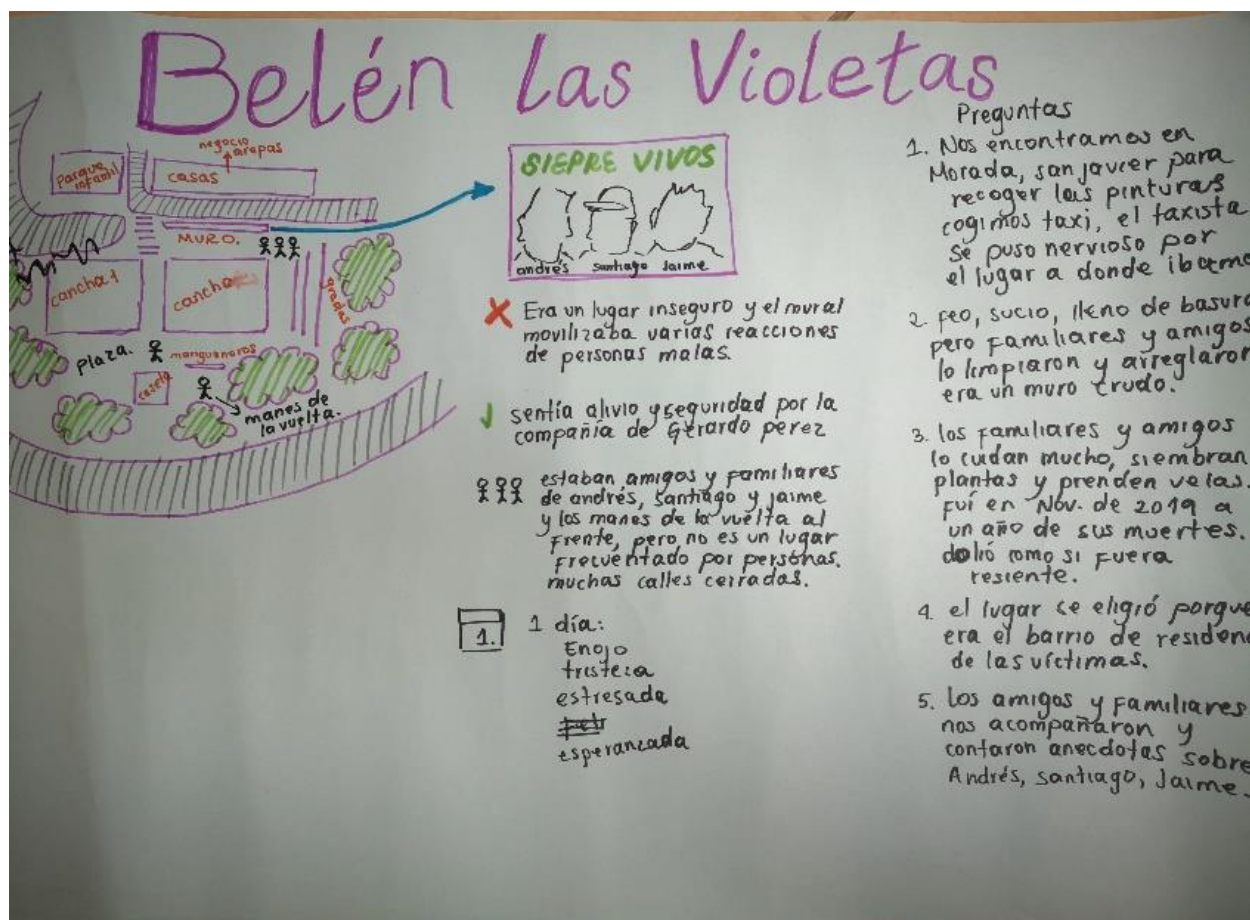 Belén Las Violetas
negocio
arepas
Parque
infantil
casas
MURO.
cancha 1
cancha
gradas
plaza.
mangueneros
caseta
manes de
la vuelta.
SIEPRE VIVOS
andrés
Santiago
Jaime
Era un lugar inseguro y el mural
movilizaba varias reacciones
de personas malas.
sentía alivio y seguridad por la
compañia de Gerardo perez
estaban amigos y familiares
de andrés, Santiago y jaime
y los manes de la vuelta al
frente, pero no es un lugar
frecuentado por personas.
muchas calles cerradas.
1.
1 día:
Enojo
tristeza
estresada
esperanzada
Preguntas
1. Nos encontramos en
Morada, san javier para
recoger las pinturas
cogimos taxi, el taxista
se puso nervioso por
el lugar a donde ibamo
2. feo, sucio, lleno de basura
pero familiares y amigos
lo limpiaron y arreglaron
era un muro crudo.
3. los familiares y amigos
lo cuidan mucho, siembran
plantas y prenden velas.
fuí en Nov. de 2019 a
un año de sus muertes.
dolió como si fuera
resiente.
4. el lugar se eligió porque
era el barrio de residen
de las víctimas.
5. los amigos y familiares
nos acompañaron y
contaron anecdotas sobre
Andrés, santiago, Jaime.